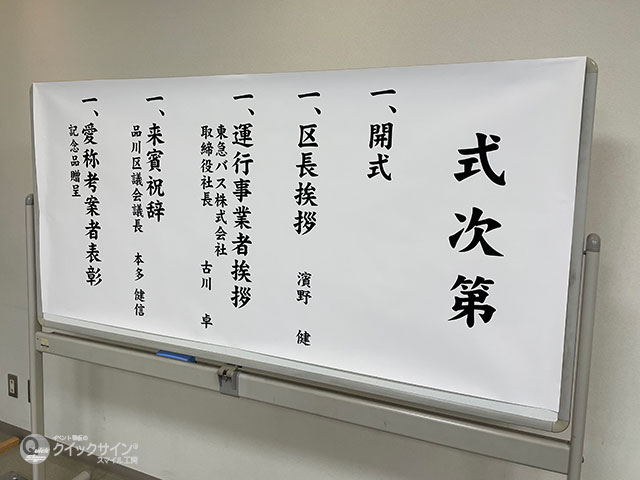 式次第
一、開式
一、区長挨拶
濱野 健
一、運行事業者挨拶
東急バス株式会社
取締役社長 古川 卓
一、来賓祝辞
品川区議会議長 本多 健信
一、愛称考案者表彰
記念品贈呈
イベント看板の
クイックサイン®
スマイル工房